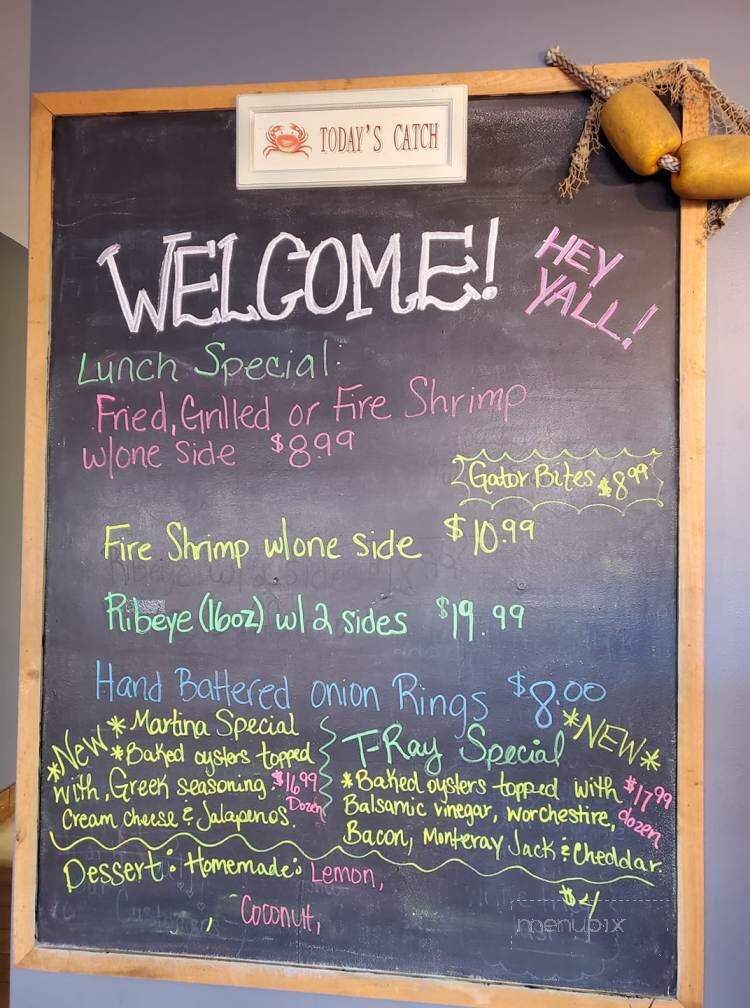 TODAY'S CATCH
WELCOME!
HEY
YALL!
Lunch Special:
Fried, Grilled or Fire Shrimp
w/one side $8.99
Gator Bites $8.99
Fire Shrimp w/one side $10.99
Ribeye (16oz) w/ 2 sides $19.99
Hand Battered onion Rings $8.00
*New* Martina Special
*Baked oysters topped
with, Greek seasoning $16.99
Cream Cheese & Jalapenos. Dozen
*NEW*
T-Ray Special
*Baked oysters topped with $17.99
Balsamic vinegar, worchestire, dozen
Bacon, Monteray Jack & Cheddar.
Dessert: Homemade: Lemon,
, Coconut,
$4
menupix